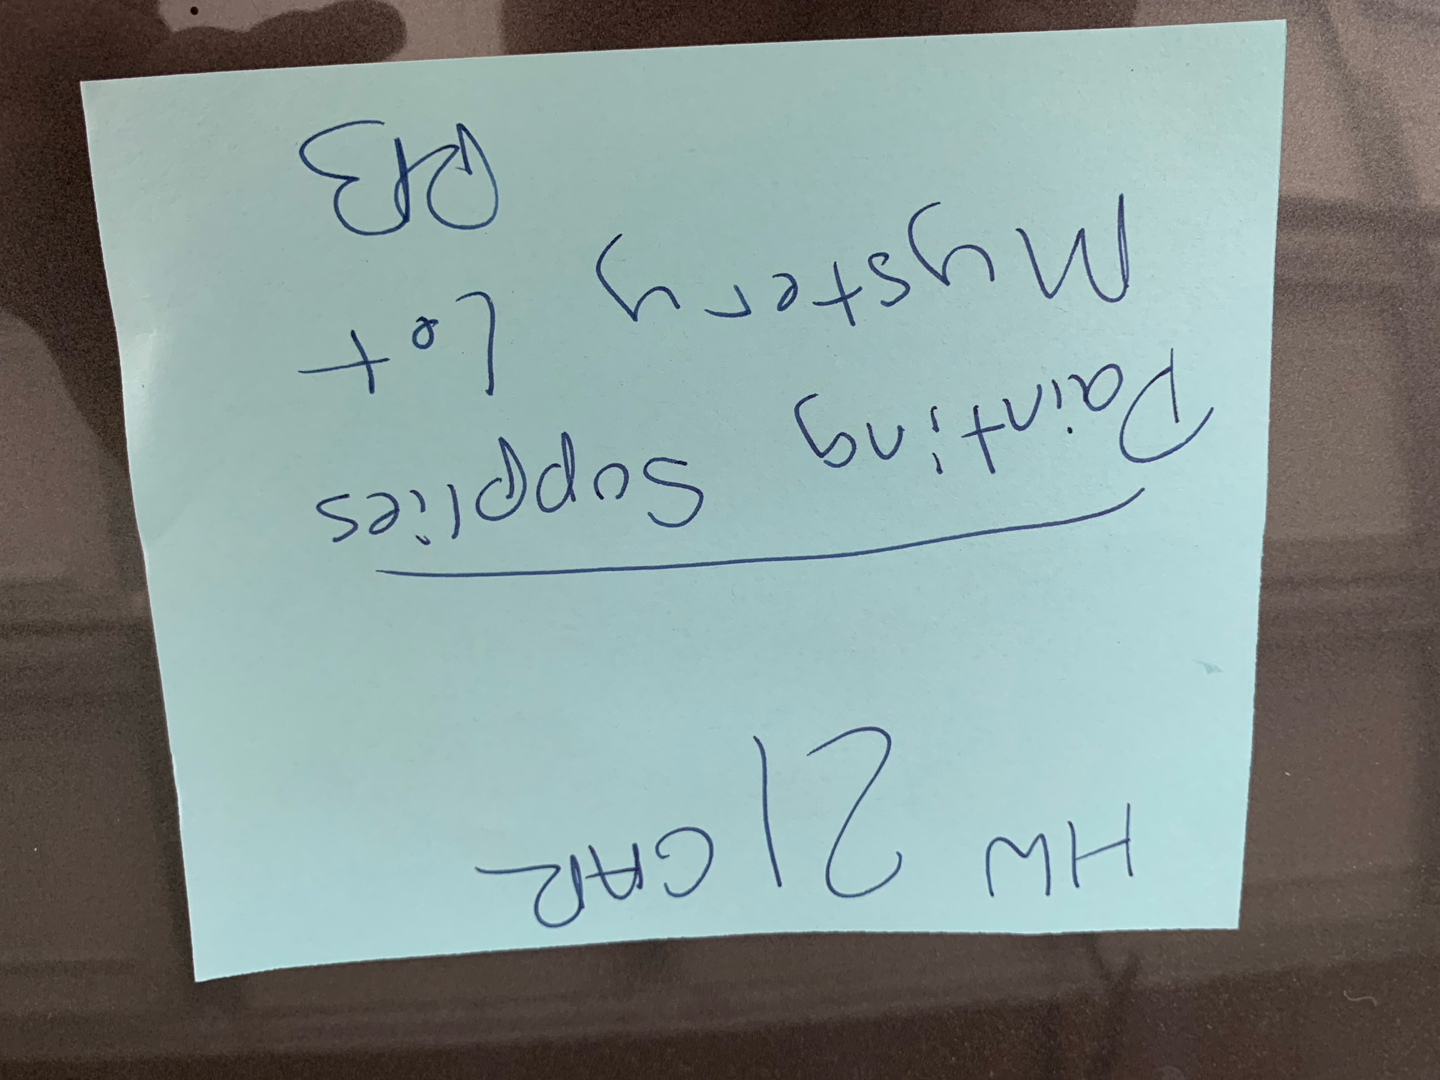 HW 21 CAR
Painting Supplies
Mystery Lot